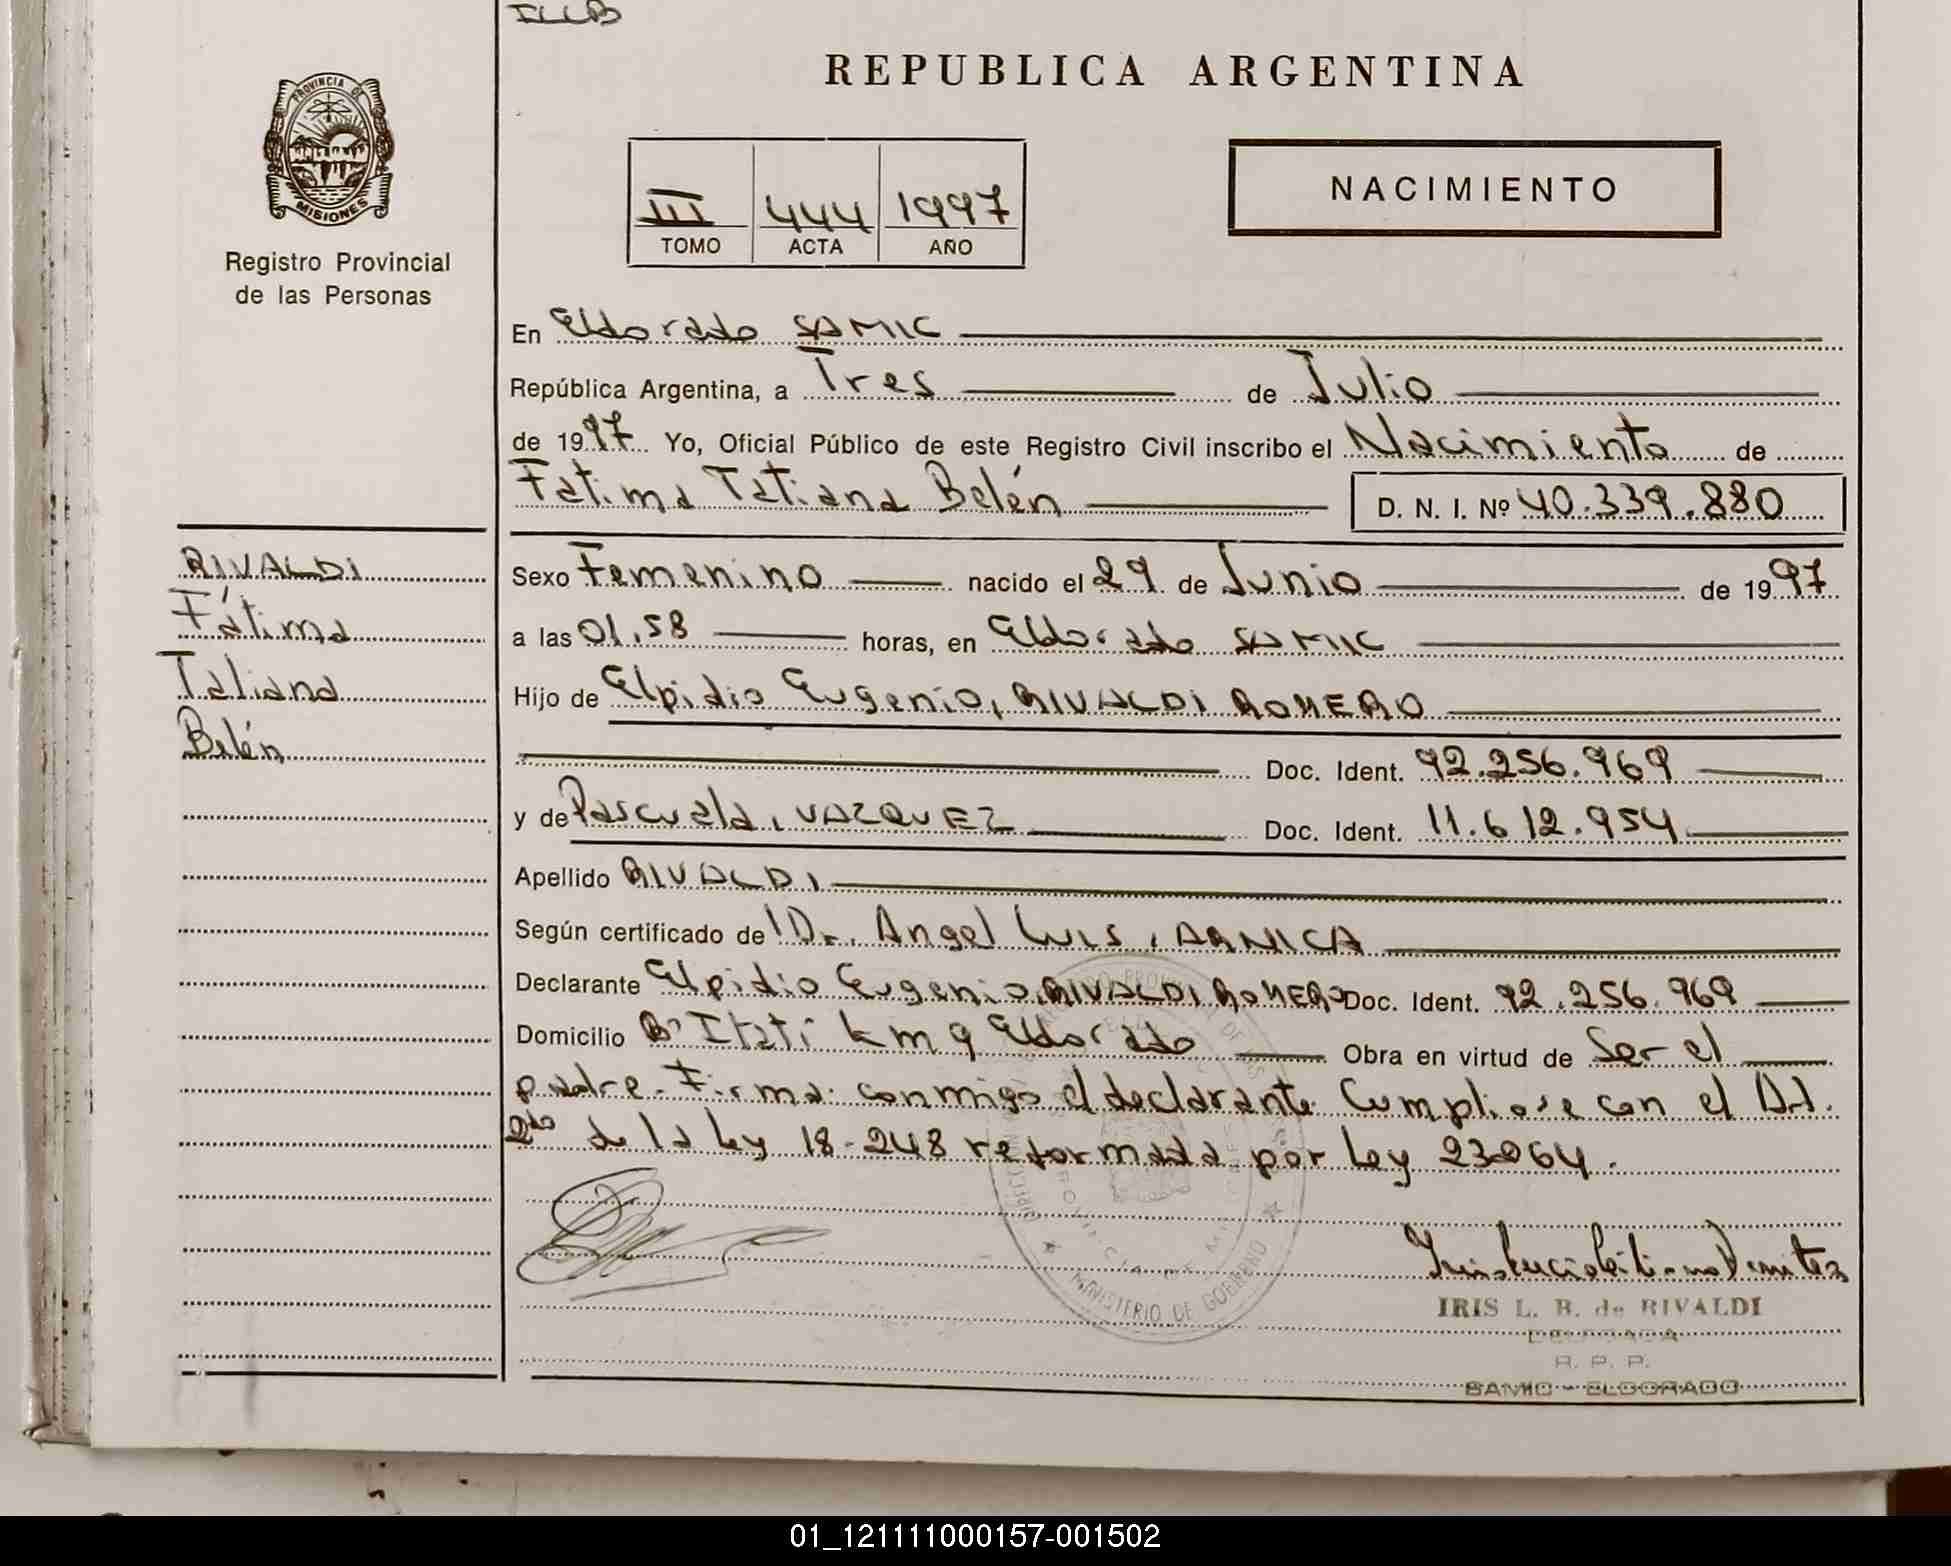 ILLB
REPUBLICA ARGENTINA
PROVINCIA DE
MISIONES
Registro Provincial
de las Personas
III 444 1997
TOMO ACTA AÑO
NACIMIENTO
En Eldorado SAMIC
República Argentina, a Tres de Julio
de 1997 Yo, Oficial Público de este Registro Civil inscribo el Nacimiento de
Fatima Tatiana Belén D. N. I. Nº 40.339.880
RIVALDI
Fátima
Tatiana
Belén
Sexo Femenino nacido el 29 de Junio de 1997
a las 01.58 horas, en Eldorado SAMIC
Hijo de Elpidio Eugenio, RIVALDI ROMERO
Doc. Ident. 92.256.969
y de Pascuala, VAZQUEZ Doc. Ident. 11.612.954
Apellido RIVALDI
Según certificado de Dr. Angel Luis, ARNICA
Declarante Elpidio Eugenio, RIVALDI ROMERO Doc. Ident. 92.256.969
Domicilio Bº Itatí km 9 Eldorado Obra en virtud de Ser el
padre. Firma conmigo el declarante. Cumpliose con el Art.
2do de la Ley 18-248 reformada por Ley 23264.
MINISTERIO DE GOBIERNO
IRIS L. B. de RIVALDI
DELEGADA
R. P. P.
SAMIC - ELDORADO
01_121111000157-001502